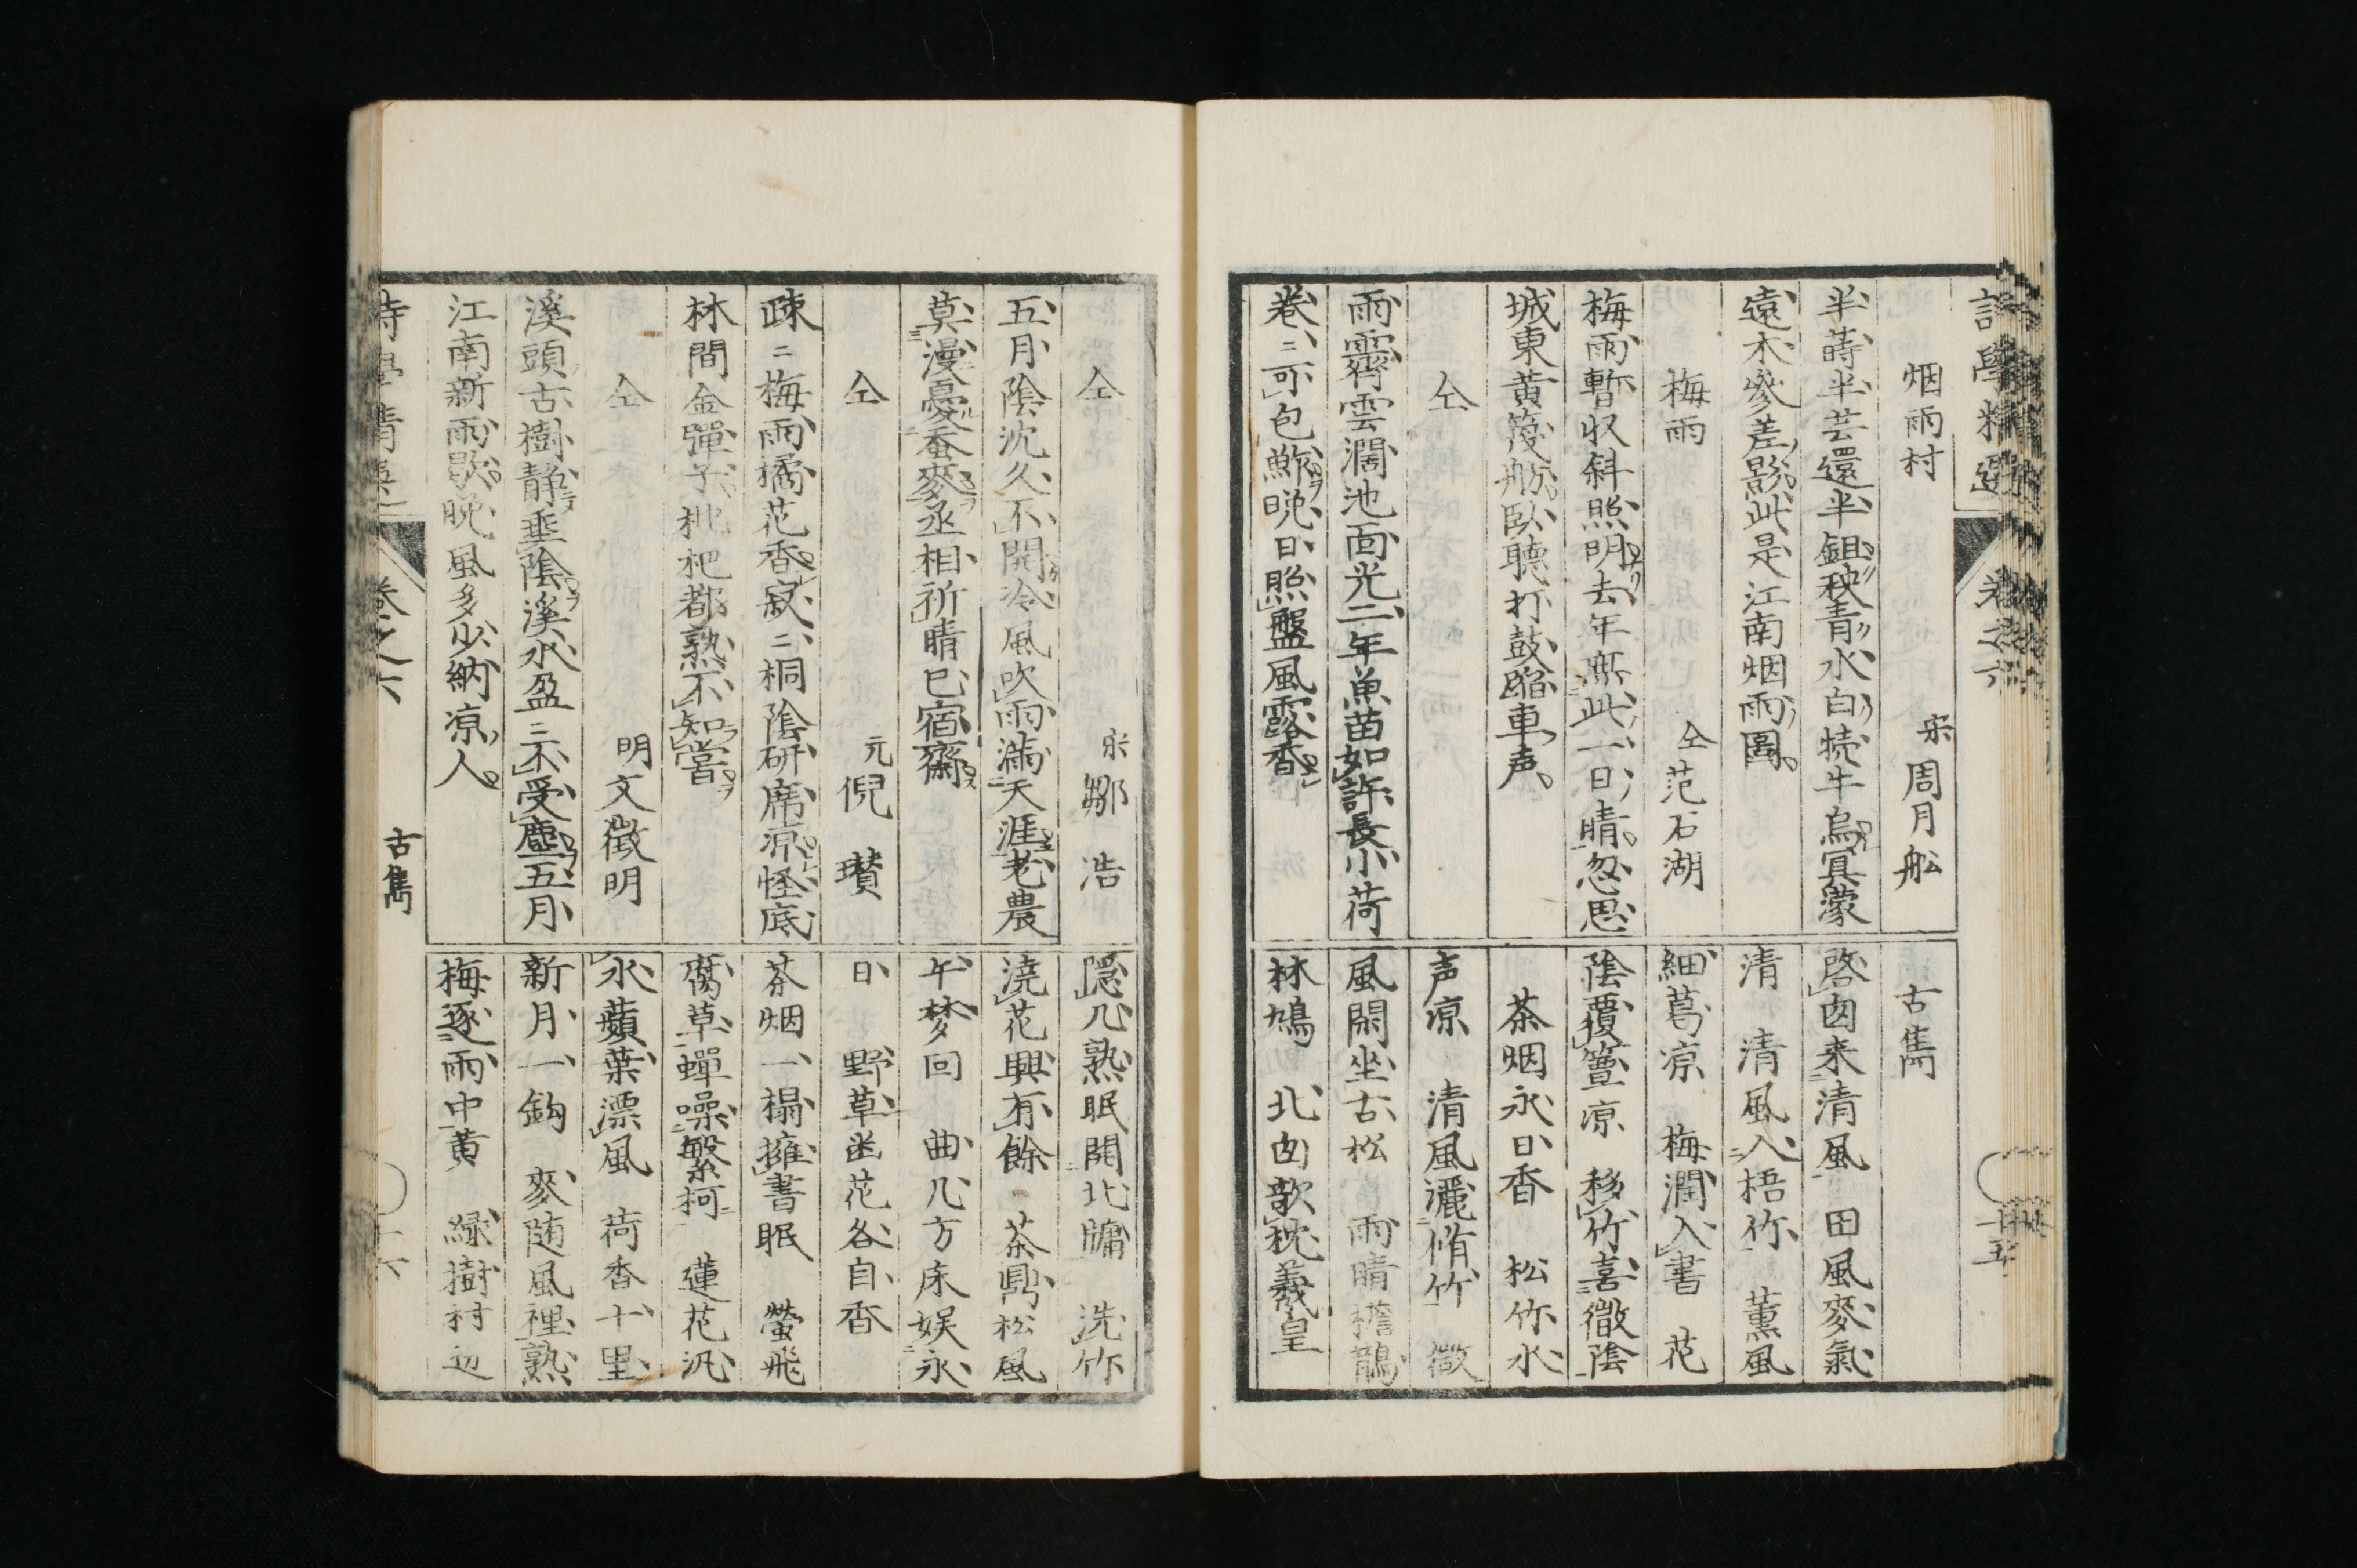 詩學精選
卷之六
十五
烟雨村
宋 周月船
半蒔半芸還半鉏秧青水白犢牛烏冥濛
遠木參差影此是江南烟雨圖
梅雨
仝 范石湖
梅雨暫収斜照明去年無此一日晴忽思
城東黄篾舫臥聽打鼓踏車声
仝
雨霽雲濶池面光二年魚苗如許長小荷
卷〻可包鮓晚日照盤風露香
古雋
啓囱来清風 田風麥氣
清 清風入梧竹 薫風
細葛凉 梅潤入書 花
陰覆簟凉 移竹喜微陰
茶烟永日香 松竹水
声凉 清風灑脩竹 微
風閑坐古松 雨晴擔鵲
林鳩 北囱欹枕羲皇
仝
宋 鄒 浩
五月陰沈久不開冷風吹雨滿天涯老農
莫漫憂蚕麥丞相祈晴已宿齋
仝
元 倪 瓚
疎〻梅雨橘花香寂〻桐陰研席凉怪底
林間金彈子枇杷都熟不知嘗
仝
明 文徴明
溪頭古樹靜垂陰溪水盈〻不受塵五月
江南新雨歇晚風多少納凉人
隠几熟眠開北牖 洗竹
澆花興有餘 茶鼎松風
午梦回 曲几方床娯永
日 野草幽花各自香
茶烟一榻擁書眠 螢飛
腐草蟬噪繁柯 蓮花汎
水蘋葉漂風 荷香十里
新月一鈎 麥随風裡熟
梅逐雨中黄 緑樹村辺
卷之六
古雋